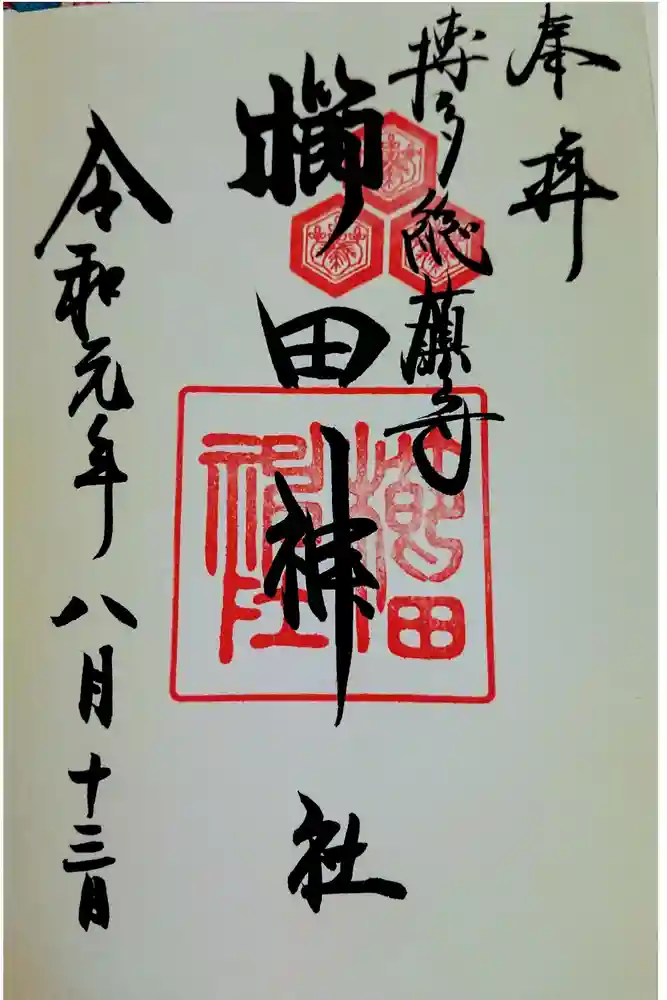 奉拝
博多総鎮守
櫛田神社
櫛田
神社
令和元年八月十三日